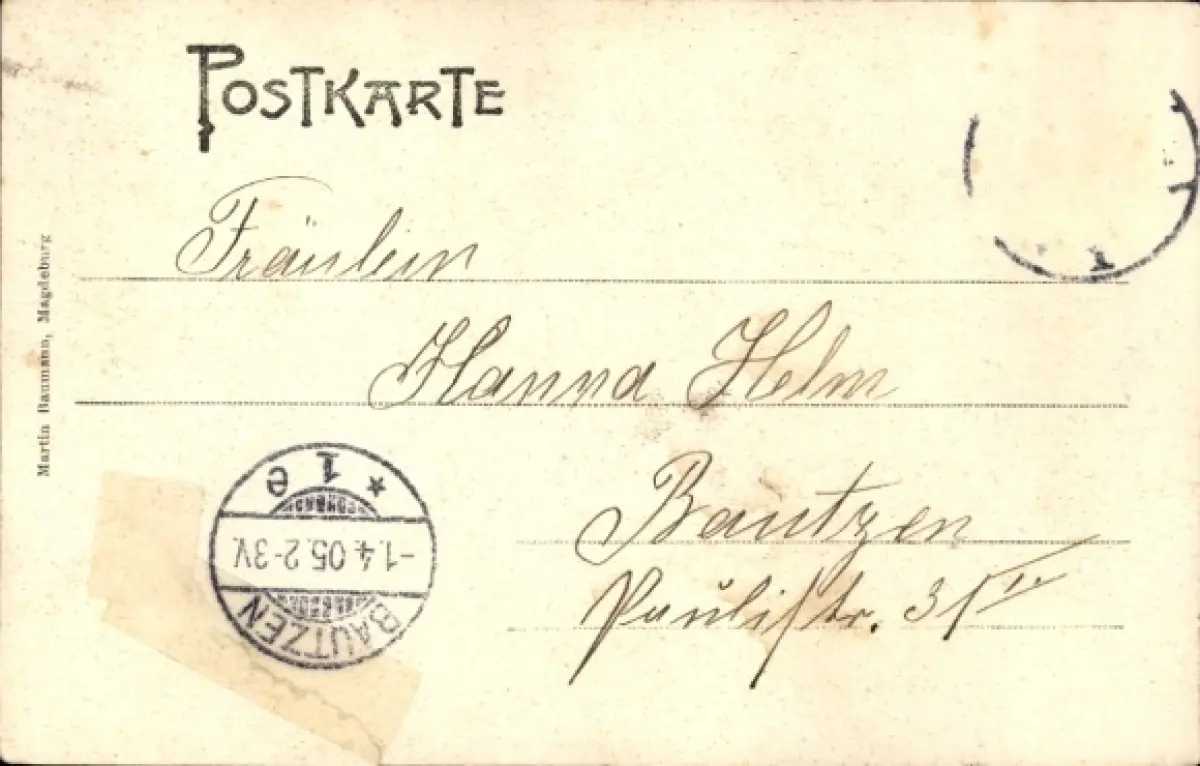 POSTKARTE
Fräulein
Hanna Helm
Bautzen
Paulistr. 3
Martin Baumann, Magdeburg
* 1 e
-1.4.05.2-3V.
BAUTZEN